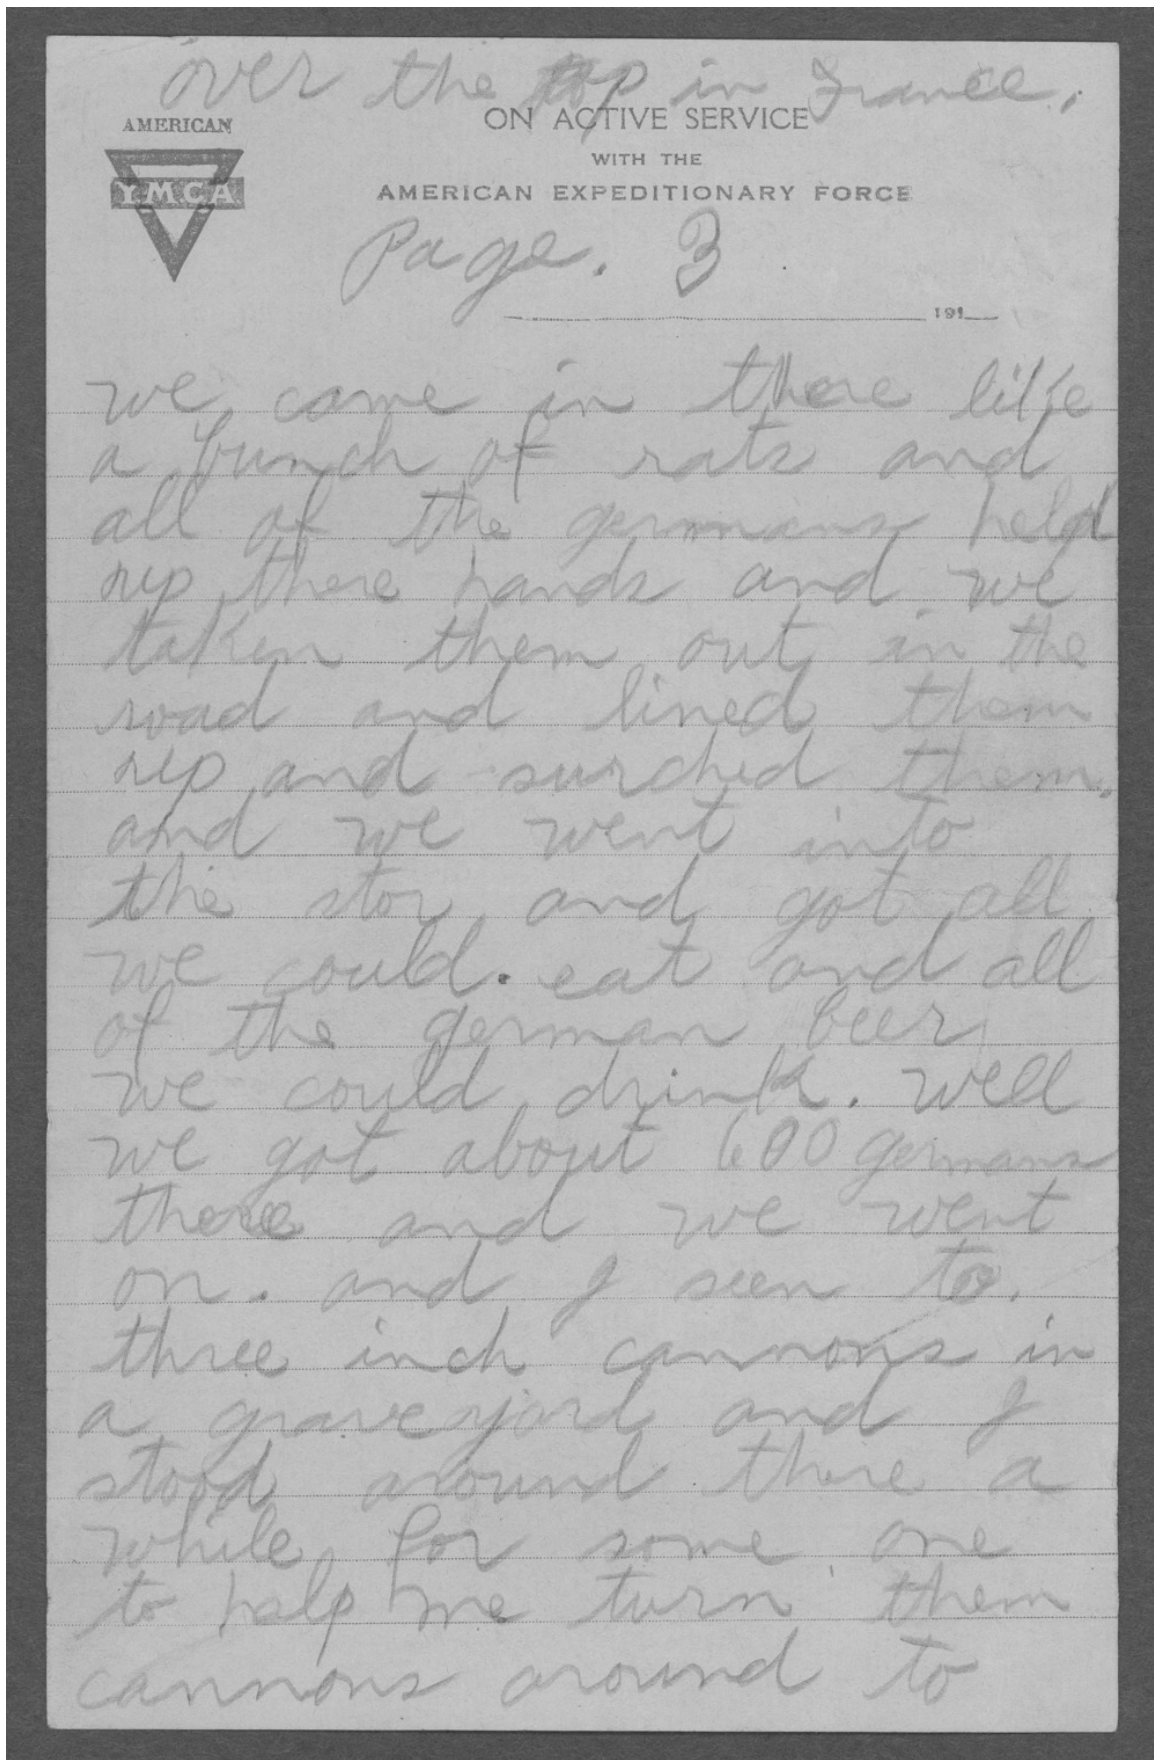 over the top in France.
AMERICAN
YMCA
ON ACTIVE SERVICE
WITH THE
AMERICAN EXPEDITIONARY FORCE
Page. 3
191
we came in there like
a bunch of rats and
all of the germans held
up there hands and we
taken them out in the
road and lined them
up and surched them.
and we went into
the stor and got all
we could. eat and all
of the german beer
we could drink. well
we got about 600 germans
there and we went
on. and I seen to
three inch cannons in
a graveyard and I
stood around there a
while for some one
to help me turn them
cannons around to